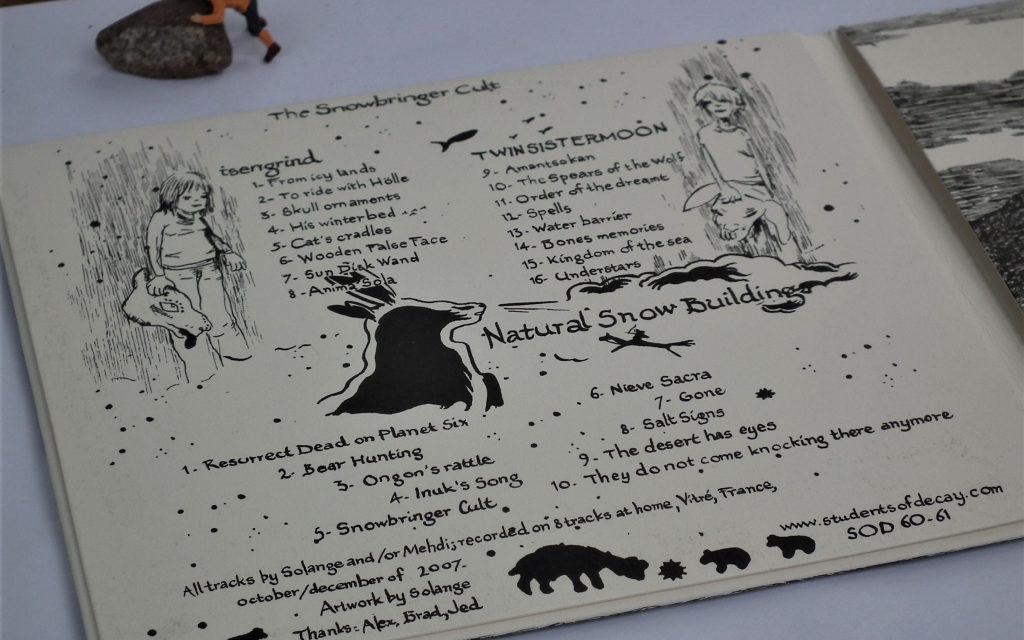 The Snowbringer Cult
isengrind
1- From icy lands
2- To ride with Holle
3- Skull ornaments
4- His winterbed
5- Cat's cradles
6- Wooden False Face
7- Sun Disk Wand
8- Anima Sola
TWINSISTERMOON
9- Amantsokan
10- The Spears of the Wolf
11- Order of the dreamt
12- Spells
13- Water barrier
14- Bones memories
15- Kingdom of the sea
16- Understars
Natural Snow Buildings
1- Resurrect Dead on Planet Six
2- Bear Hunting
3- Ongon's rattle
4- Inuk's Song
5- Snowbringer Cult
6- Nieve Sacra
7- Gone
8- Salt Signs
9- The desert has eyes
10- They do not come knocking there anymore
All tracks by Solange and/or Mehdi; recorded on 8 tracks at home, Vitré, France,
october/december of 2007-
Artwork by Solange
Thanks: Alex, Brad, Jed
www.studentsofdecay.com
SOD 60-61